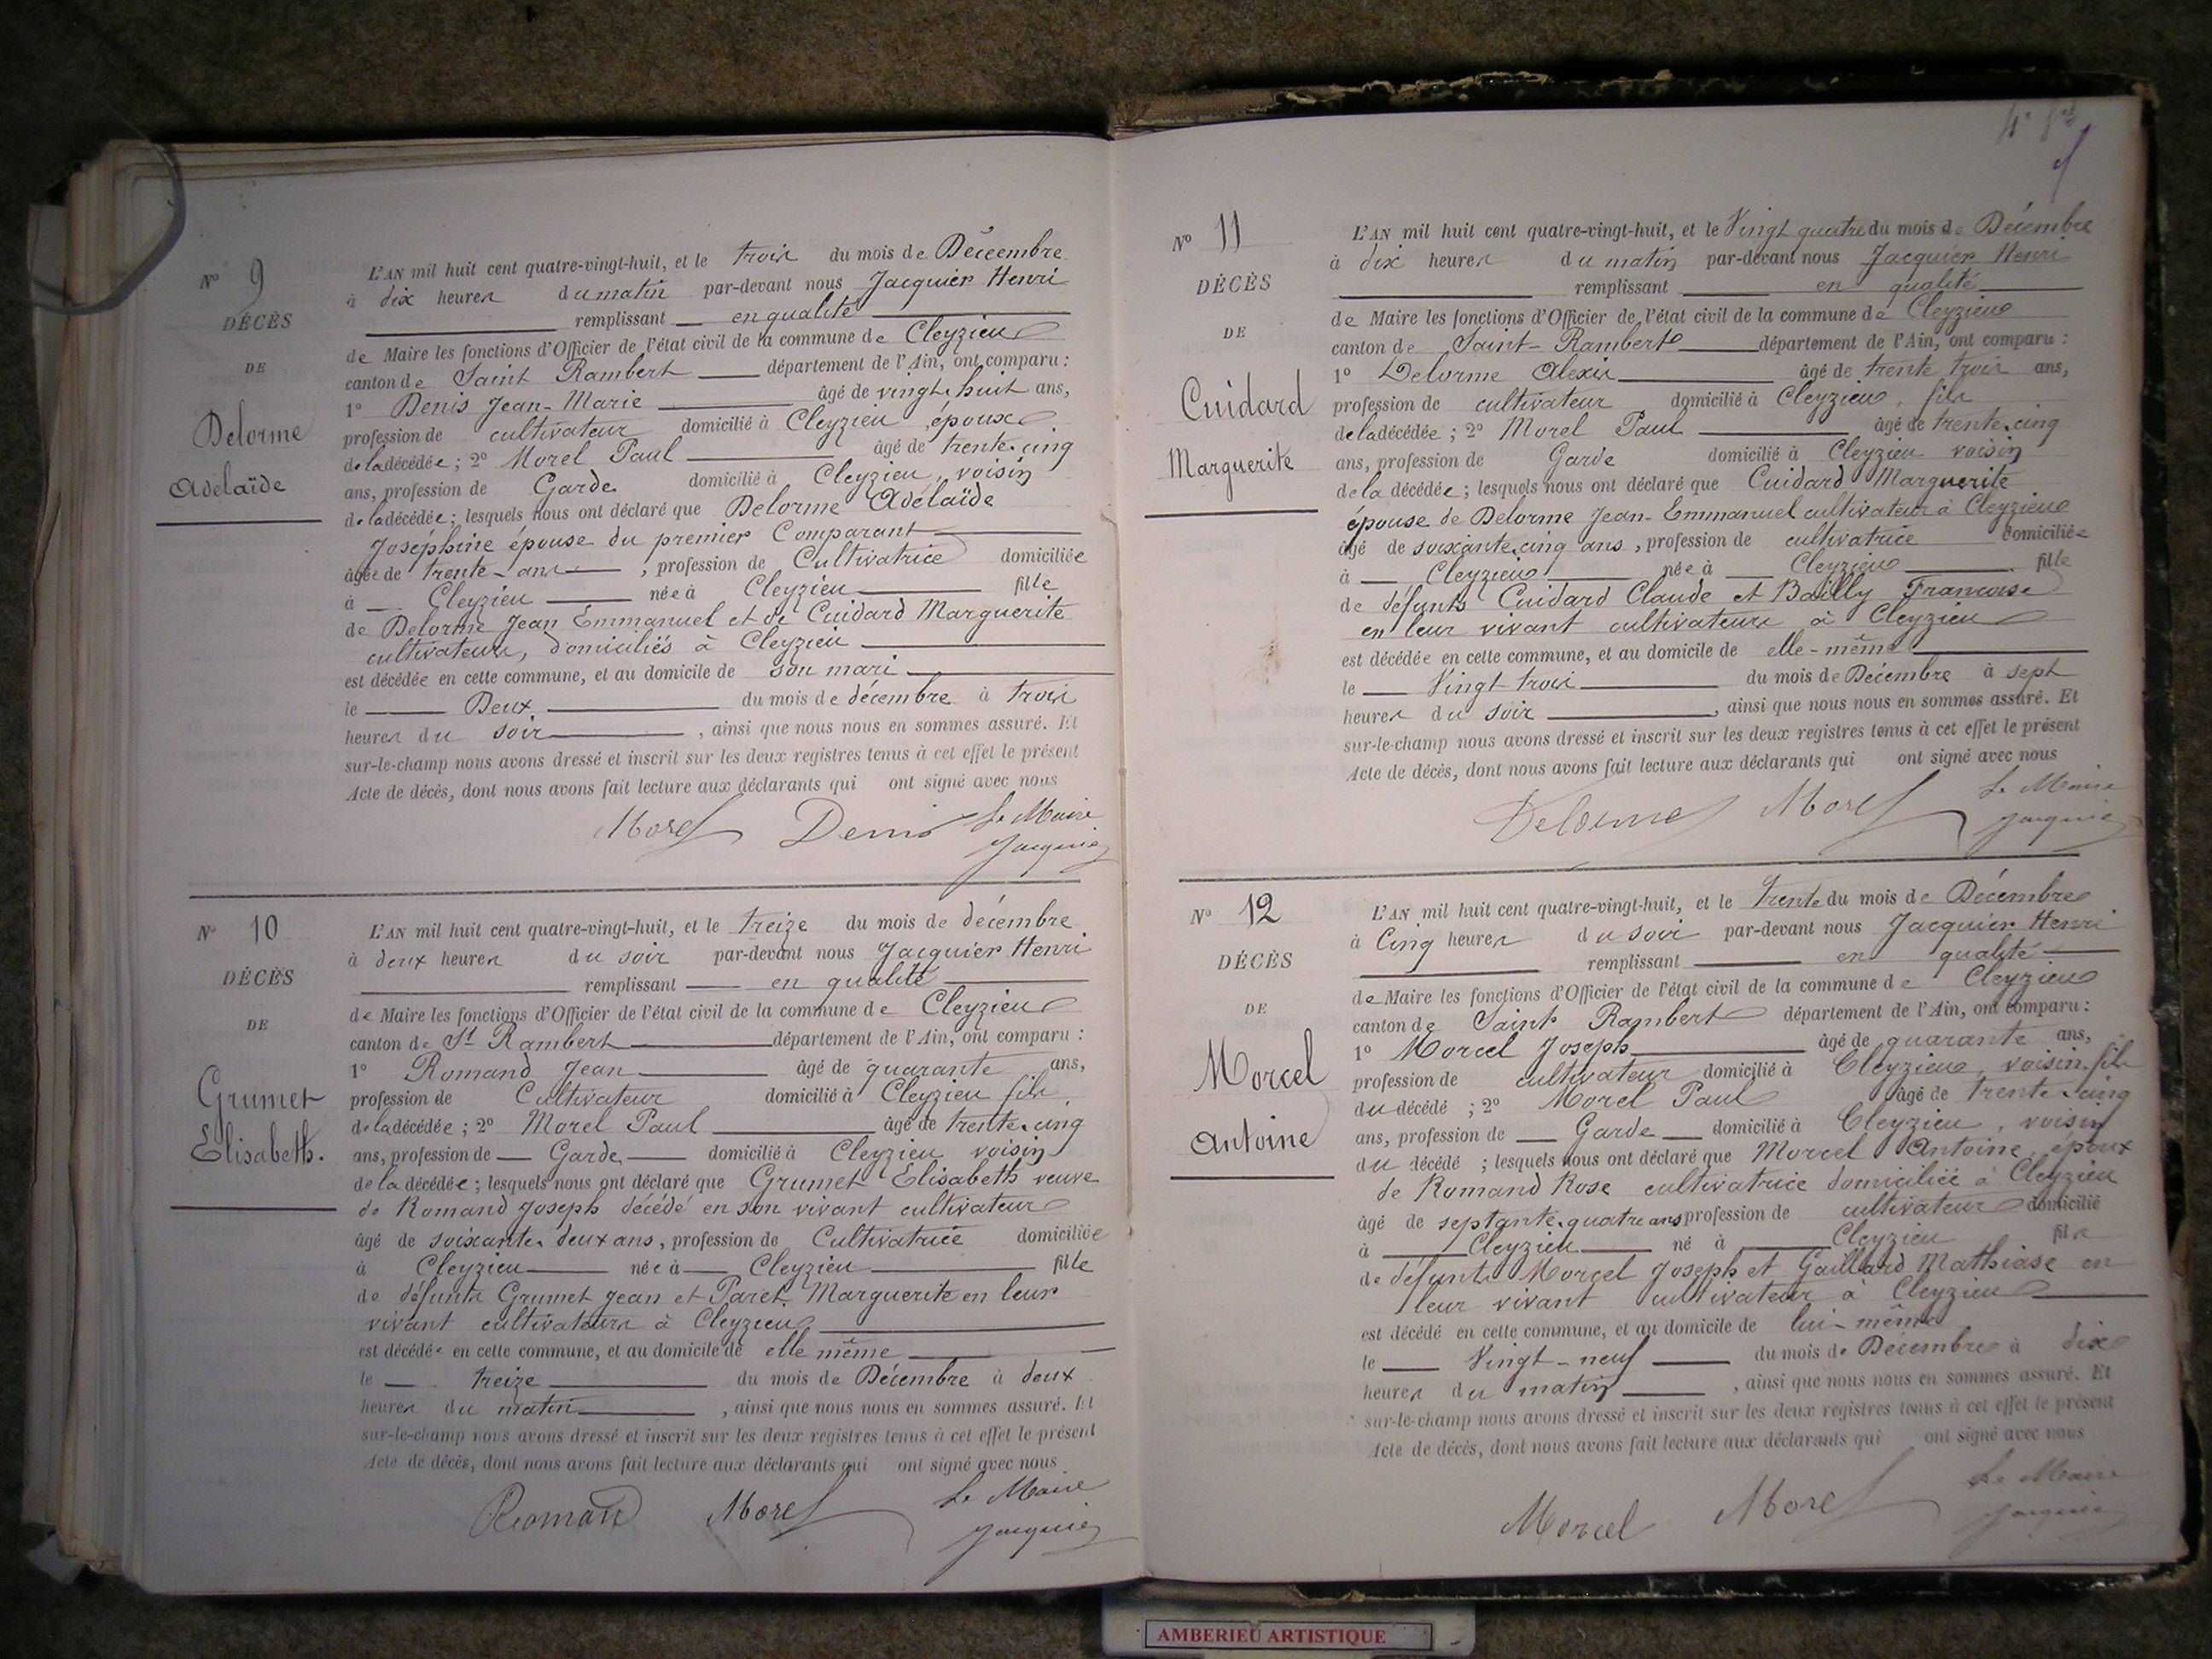 Nº 9
DÉCÈS
DE
Delorme
Adelaïde
L'AN mil huit cent quatre-vingt-huit, et le trois du mois de Décembre
à dix heures du matin par-devant nous Jacquier Henri
remplissant en qualité
de Maire les fonctions d'Officier de l'état civil de la commune de Cleyzieu
canton de Saint Rambert département de l'Ain, ont comparu :
1º Denis Jean-Marie âgé de vingt-huit ans,
profession de cultivateur domicilié à Cleyzieu, époux
de la décédée ; 2º Morel Paul âgé de trente-cinq
ans, profession de Garde domicilié à Cleyzieu, voisin
de la décédée ; lesquels nous ont déclaré que Delorme Adélaïde
Joséphine épouse du premier Comparant
âgée de trente-ans, profession de Cultivatrice domiciliée
à Cleyzieu née à Cleyzieu fille
de Delorme Jean Emmanuel et de Cuidard Marguerite
cultivateurs, domiciliés à Cleyzieu
est décédée en cette commune, et au domicile de son mari
le Deux du mois de décembre à trois
heures du soir, ainsi que nous nous en sommes assuré. Et
sur-le-champ nous avons dressé et inscrit sur les deux registres tenus à cet effet le présent
Acte de décès, dont nous avons fait lecture aux déclarants qui ont signé avec nous
Morel Denis Le Maire
Jacquier
Nº 10
DÉCÈS
DE
Grumet
Elisabeth.
L'AN mil huit cent quatre-vingt-huit, et le treize du mois de décembre
à deux heures du soir par-devant nous Jacquier Henri
remplissant en qualité
de Maire les fonctions d'Officier de l'état civil de la commune de Cleyzieu
canton de St Rambert département de l'Ain, ont comparu :
1º Romand Jean âgé de quarante ans,
profession de Cultivateur domicilié à Cleyzieu fils
de la décédée ; 2º Morel Paul âgé de trente-cinq
ans, profession de Garde domicilié à Cleyzieu voisin
de la décédée ; lesquels nous ont déclaré que Grumet Elisabeth veuve
de Romand Joseph décédé en son vivant cultivateur
âgé de soixante-deux ans, profession de Cultivatrice domiciliée
à Cleyzieu née à Cleyzieu fille
de défunts Grumet Jean et Paret Marguerite en leur
vivant cultivateurs à Cleyzieu
est décédée en cette commune, et au domicile de elle même
le treize du mois de Décembre à deux
heures du matin, ainsi que nous nous en sommes assuré. Et
sur-le-champ nous avons dressé et inscrit sur les deux registres tenus à cet effet le présent
Acte de décès, dont nous avons fait lecture aux déclarants qui ont signé avec nous
Romand Morel Le Maire
Jacquier
Nº 11
DÉCÈS
DE
Cuidard
Marguerite
L'AN mil huit cent quatre-vingt-huit, et le Vingt quatre du mois de Décembre
à dix heures du matin par-devant nous Jacquier Henri
remplissant en qualité
de Maire les fonctions d'Officier de l'état civil de la commune de Cleyzieu
canton de Saint-Rambert département de l'Ain, ont comparu :
1º Delorme Alexis âgé de trente trois ans,
profession de cultivateur domicilié à Cleyzieu, fils
de la décédée ; 2º Morel Paul âgé de trente-cinq
ans, profession de Garde domicilié à Cleyzieu voisin
de la décédée ; lesquels nous ont déclaré que Cuidard Marguerite
épouse de Delorme Jean-Emmanuel cultivateur à Cleyzieu
âgé de soixante-cinq ans, profession de cultivatrice domiciliée
à Cleyzieu née à Cleyzieu fille
de défunts Cuidard Claude et Bailly Francoise
en leur vivant cultivateurs à Cleyzieu
est décédée en cette commune, et au domicile de elle-même
le Vingt-trois du mois de Décembre à sept
heures du soir, ainsi que nous nous en sommes assuré. Et
sur-le-champ nous avons dressé et inscrit sur les deux registres tenus à cet effet le présent
Acte de décès, dont nous avons fait lecture aux déclarants qui ont signé avec nous
Delorme Morel Le Maire
Jacquier
Nº 12
DÉCÈS
DE
Morcel
Antoine
L'AN mil huit cent quatre-vingt-huit, et le trente du mois de Décembre
à Cinq heures du soir par-devant nous Jacquier Henri
remplissant en qualité
de Maire les fonctions d'Officier de l'état civil de la commune de Cleyzieu
canton de Saint Rambert département de l'Ain, ont comparu :
1º Morcel Joseph âgé de quarante ans,
profession de cultivateur domicilié à Cleyzieu, voisin fils
du décédé ; 2º Morel Paul âgé de trente-cinq
ans, profession de Garde domicilié à Cleyzieu, voisin
du décédé ; lesquels nous ont déclaré que Morcel Antoine, époux
de Romand Rose cultivatrice domiciliée à Cleyzieu
âgé de septante-quatre ans profession de cultivateur domicilié
à Cleyzieu né à Cleyzieu fils
de défunts Morcel Joseph et Gaillard Mathiase en
leur vivant cultivateur à Cleyzieu
est décédé en cette commune, et au domicile de lui-même
le Vingt-neuf du mois de Décembre à dix
heures du matin, ainsi que nous nous en sommes assuré. Et
sur-le-champ nous avons dressé et inscrit sur les deux registres tenus à cet effet le présent
Acte de décès, dont nous avons fait lecture aux déclarants qui ont signé avec nous
Morcel Morel Le Maire
Jacquier
AMBERIEU ARTISTIQUE